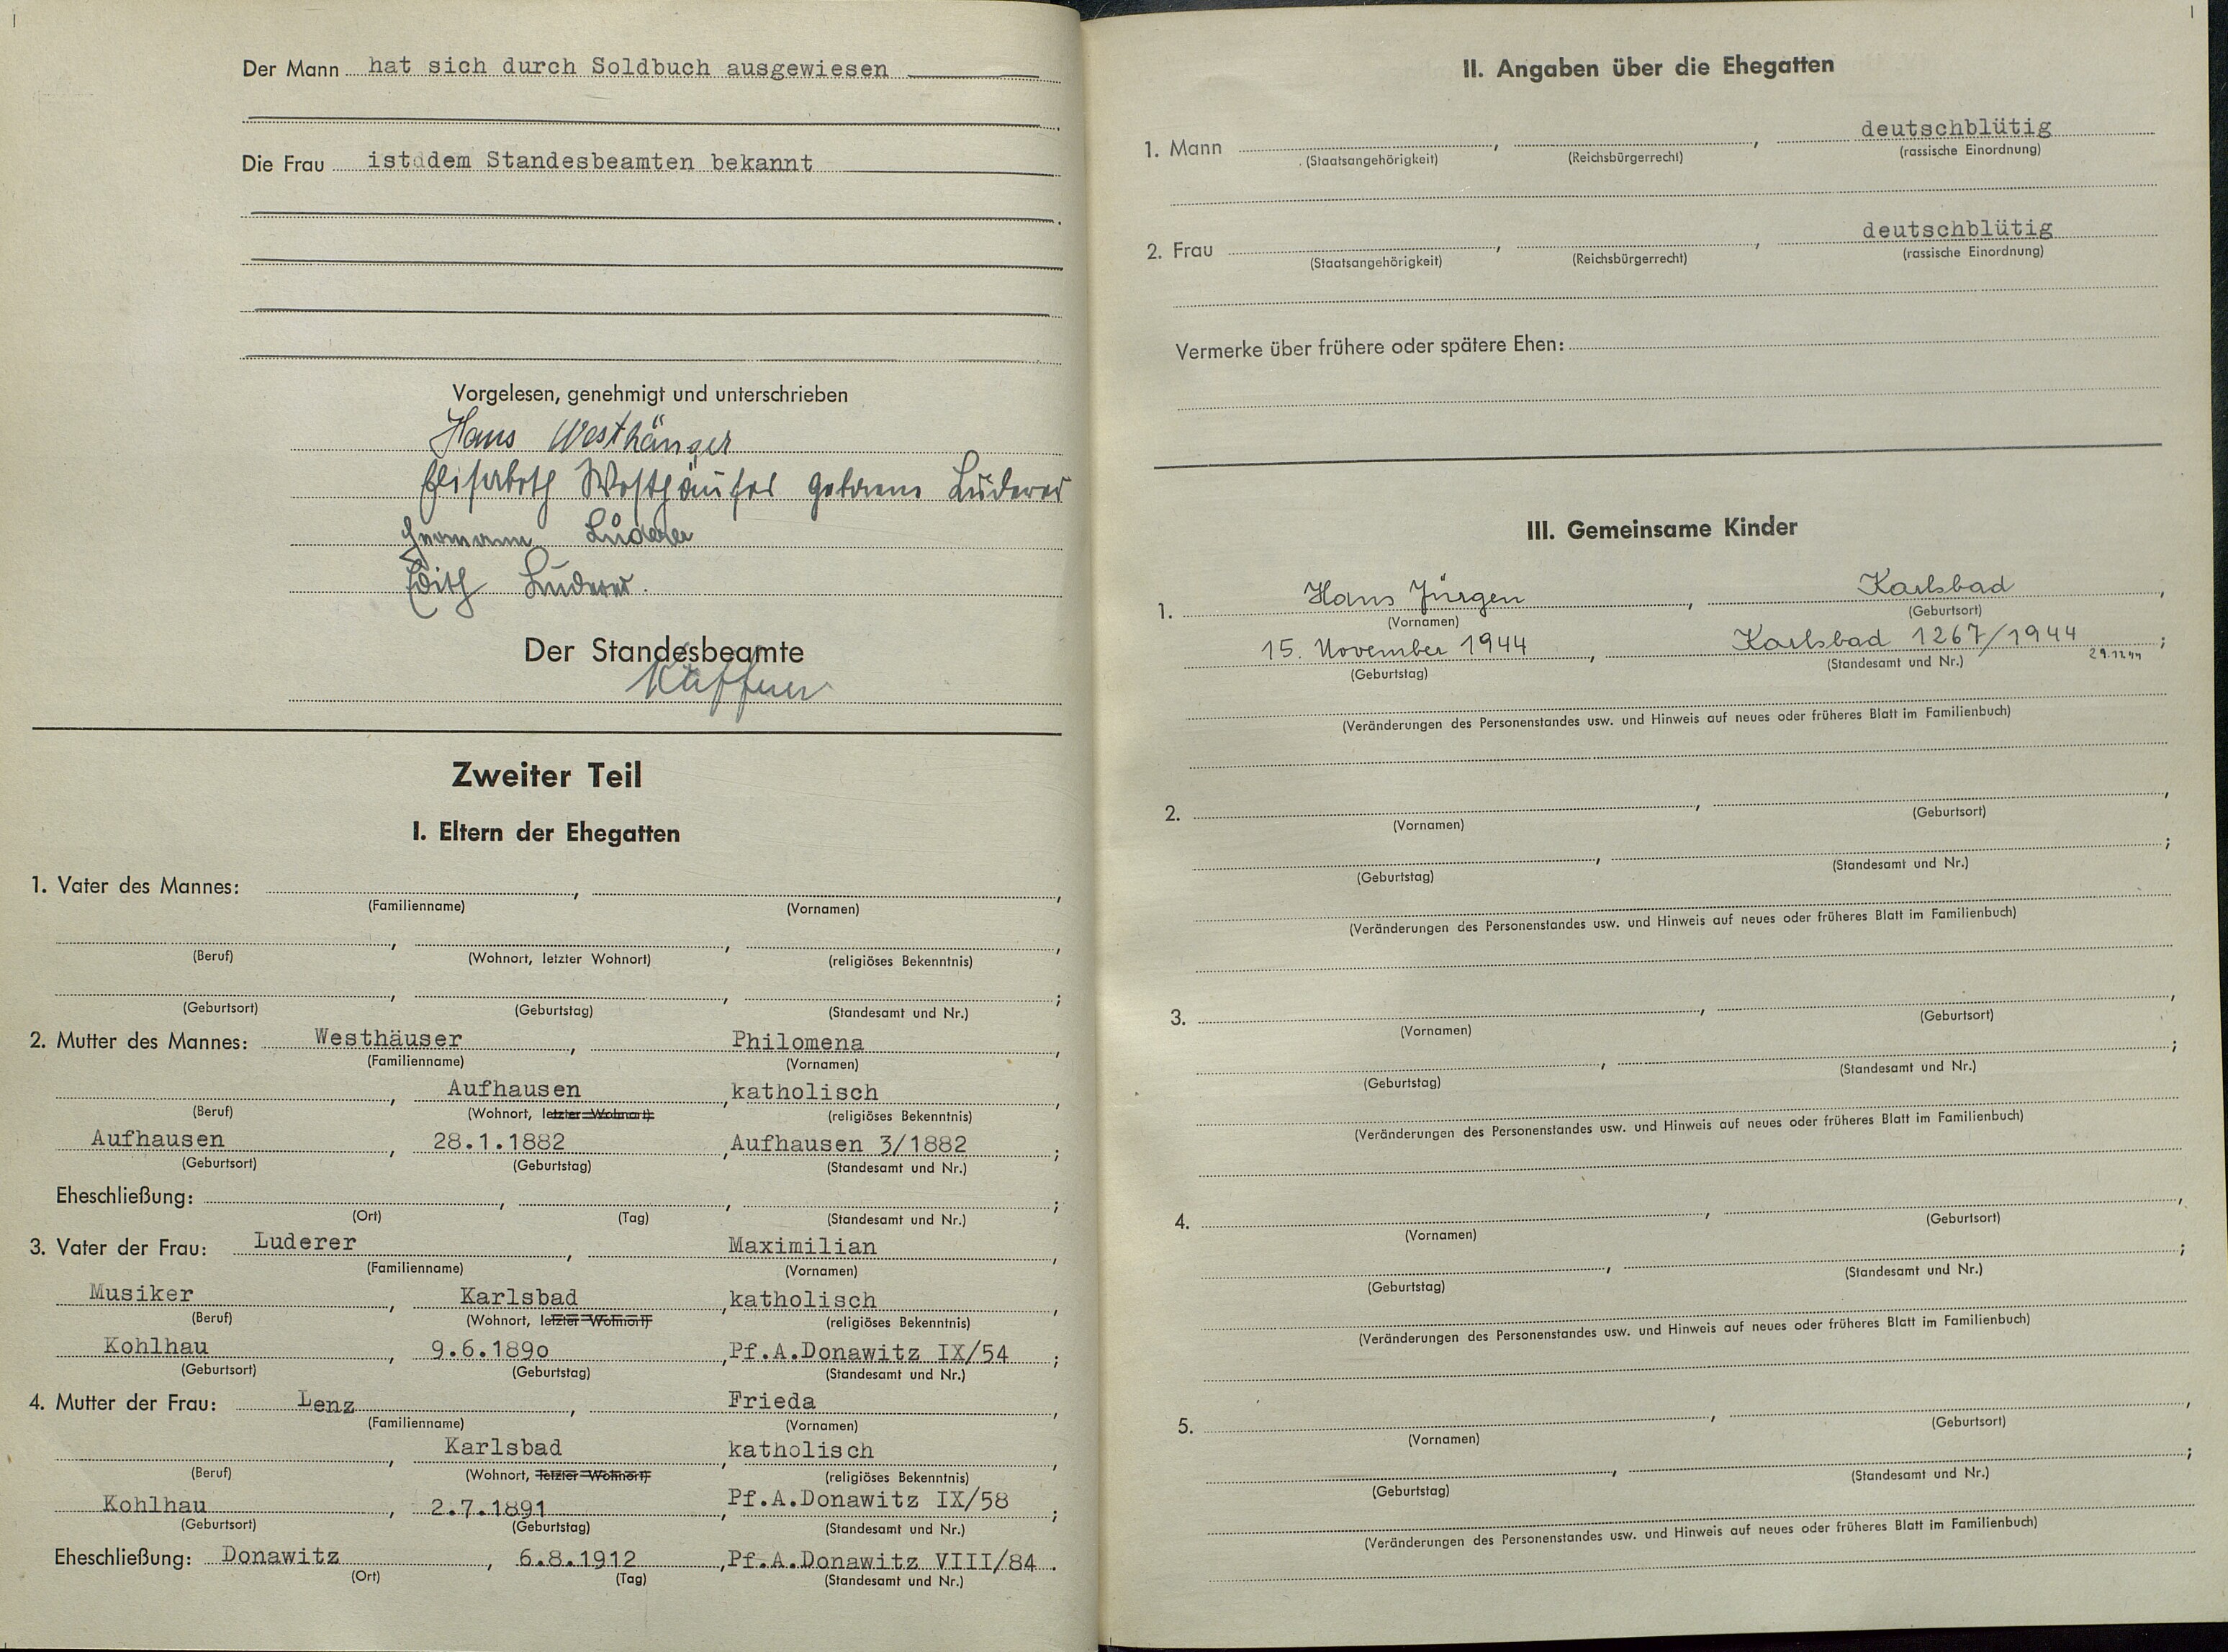 Der Mann hat sich durch Soldbuch ausgewiesen
Die Frau ist dem Standesbeamten bekannt
Vorgelesen, genehmigt und unterschrieben
Hans Westhäuser
Elisabeth Westhäuser geborene Luderer
Hermann Luderer
Edith Luderer.
Der Standesbeamte
Zweiter Teil
I. Eltern der Ehegatten
1. Vater des Mannes:
(Familienname) (Vornamen)
(Beruf) (Wohnort, letzter Wohnort) (religiöses Bekenntnis)
(Geburtsort) (Geburtstag) (Standesamt und Nr.)
2. Mutter des Mannes: Westhäuser, Philomena,
(Familienname) (Vornamen)
Aufhausen, katholisch,
(Beruf) (Wohnort, letzter Wohnort) (religiöses Bekenntnis)
Aufhausen, 28.1.1882, Aufhausen 3/1882;
(Geburtsort) (Geburtstag) (Standesamt und Nr.)
Eheschließung:
(Ort) (Tag) (Standesamt und Nr.)
3. Vater der Frau: Luderer, Maximilian,
(Familienname) (Vornamen)
Musiker, Karlsbad, katholisch,
(Beruf) (Wohnort, letzter Wohnort) (religiöses Bekenntnis)
Kohlhau, 9.6.1890, Pf.A.Donawitz IX/54;
(Geburtsort) (Geburtstag) (Standesamt und Nr.)
4. Mutter der Frau: Lenz, Frieda,
(Familienname) (Vornamen)
Karlsbad, katholisch,
(Beruf) (Wohnort, letzter Wohnort) (religiöses Bekenntnis)
Kohlhau, 2.7.1891, Pf.A.Donawitz IX/58;
(Geburtsort) (Geburtstag) (Standesamt und Nr.)
Eheschließung: Donawitz, 6.8.1912, Pf.A.Donawitz VIII/84.
(Ort) (Tag) (Standesamt und Nr.)
II. Angaben über die Ehegatten
1. Mann , , deutschblütig
(Staatsangehörigkeit) (Reichsbürgerrecht) (rassische Einordnung)
2. Frau , , deutschblütig
(Staatsangehörigkeit) (Reichsbürgerrecht) (rassische Einordnung)
Vermerke über frühere oder spätere Ehen:
III. Gemeinsame Kinder
1. Hans Jürgen, Karlsbad,
(Vornamen) (Geburtsort)
15. November 1944, Karlsbad 1267/1944;
29.12.44
(Geburtstag) (Standesamt und Nr.)
(Veränderungen des Personenstandes usw. und Hinweis auf neues oder früheres Blatt im Familienbuch)
2.
(Vornamen) (Geburtsort)
(Geburtstag) (Standesamt und Nr.)
(Veränderungen des Personenstandes usw. und Hinweis auf neues oder früheres Blatt im Familienbuch)
3.
(Vornamen) (Geburtsort)
(Geburtstag) (Standesamt und Nr.)
(Veränderungen des Personenstandes usw. und Hinweis auf neues oder früheres Blatt im Familienbuch)
4.
(Vornamen) (Geburtsort)
(Geburtstag) (Standesamt und Nr.)
(Veränderungen des Personenstandes usw. und Hinweis auf neues oder früheres Blatt im Familienbuch)
5.
(Vornamen) (Geburtsort)
(Geburtstag) (Standesamt und Nr.)
(Veränderungen des Personenstandes usw. und Hinweis auf neues oder früheres Blatt im Familienbuch)